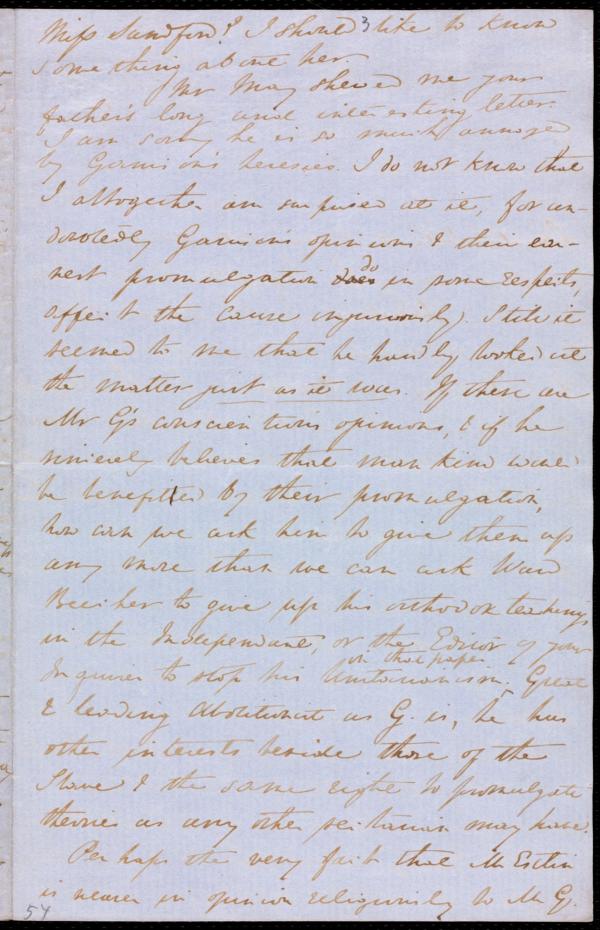 3
Miss Sandford? I should like to know
something about her.
Mr May shewed me your
father's long and interesting letter.
I am sorry he is so much annoyed
by Garrison's heresies. I do not know that
I altogether am surprised at it, for un-
doubtedly Garrison's opinions & their ear-
nest promulgation does do in some respects,
affect the cause injuriously. Still it
seemed to me that he hardly looked at
the matter just as it was. If these are
Mr G's conscientious opinions, & if he
sincerely believes that mankind would
be benefitted by their promulgation,
how can we ask him to give them up
any more than we can ask Ward
Beecher to give up his orthodox teachings
in the Independant, or the Editor of your
Inquirer to stop his Unitarianism in that paper. Great
& leading Abolitionist as G. is, he has
other interests beside those of the
Slave & the same right to promulgate
theories as any other sectarian may have.
Perhaps the very fact that Mr Estlin
is nearer in opinion religiously to Mr G.
54